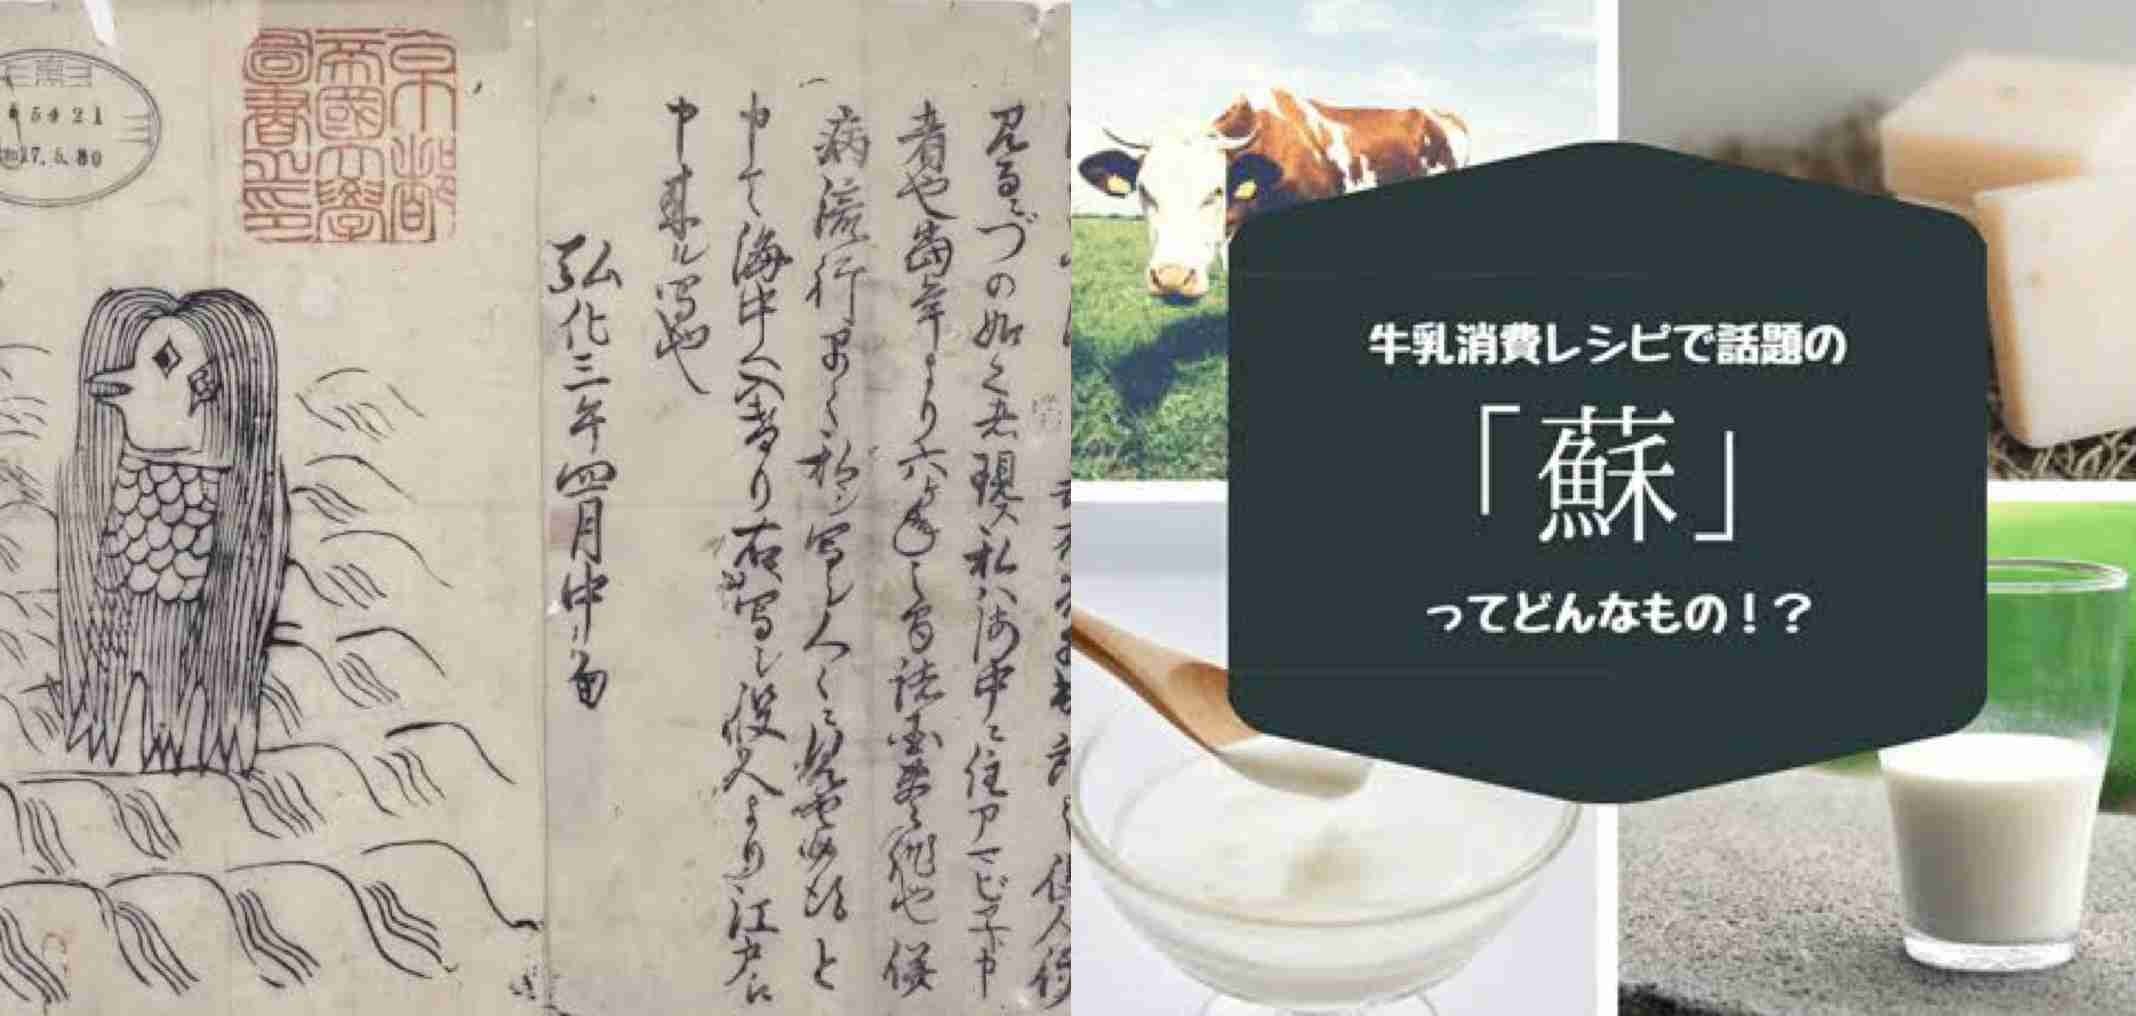 見るニづの如く者現ス私ハ海中ニ住アマビヱト申
者也當年より六ヶ年之間諸国豊作也併
病流行早々私シ写シ人々ニ見せ候得と
申て海中へ入けり右写シ役人より江戸に
申来ル写也
弘化三年四月中旬
京都
帝國大學
圖書之印
5421
17.5.30
牛乳消費レシピで話題の
「蘇」
ってどんなもの！？